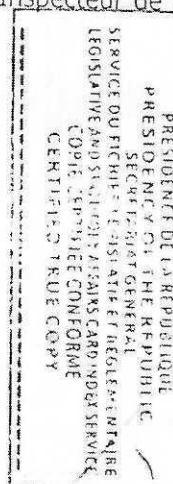 Inspecteur de
PRESIDENCE DE LA REPUBLIQUE
PRESIDENCY OF THE REPUBLIC
SECRETARIAT GENERAL
SERVICE DU FICHIER LEGISLATIF ET REGLEMENTAIRE
LEGISLATIVE AND STATUTORY AFFAIRS CARD INDEX SERVICE
COPIE CERTIFIEE CONFORME
CERTIFIED TRUE COPY